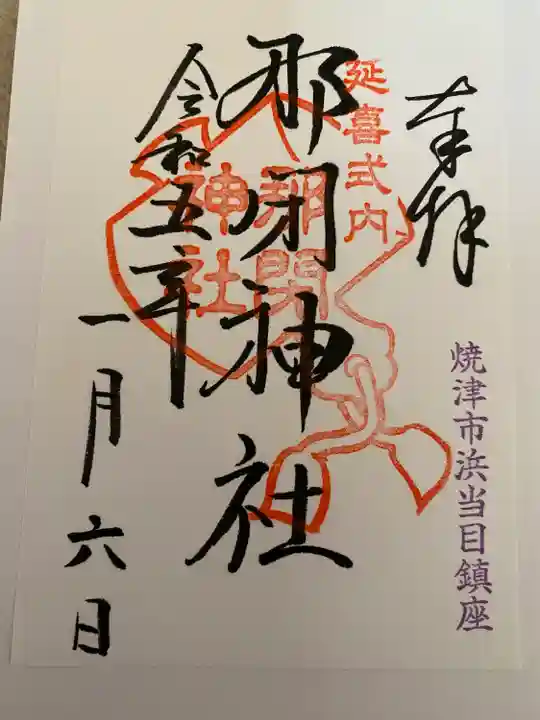 奉拝
焼津市浜当目鎮座
延喜式内
那閇神社
那閇神社
令和五年
一月六日